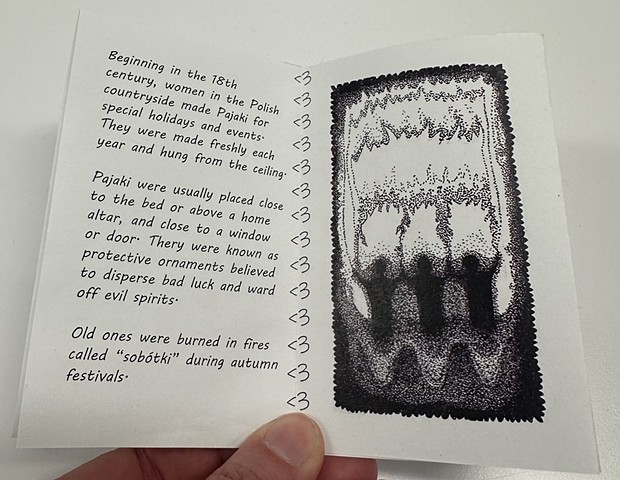 Beginning in the 18th
century, women in the Polish
countryside made Pajaki for
special holidays and events.
They were made freshly each
year and hung from the ceiling.
Pajaki were usually placed close
to the bed or above a home
altar, and close to a window
or door. Thery were known as
protective ornaments believed
to disperse bad luck and ward
off evil spirits.
Old ones were burned in fires
called "sobótki" during autumn
festivals.
<3
<3
<3
<3
<3
<3
<3
<3
<3
<3
<3
<3
<3